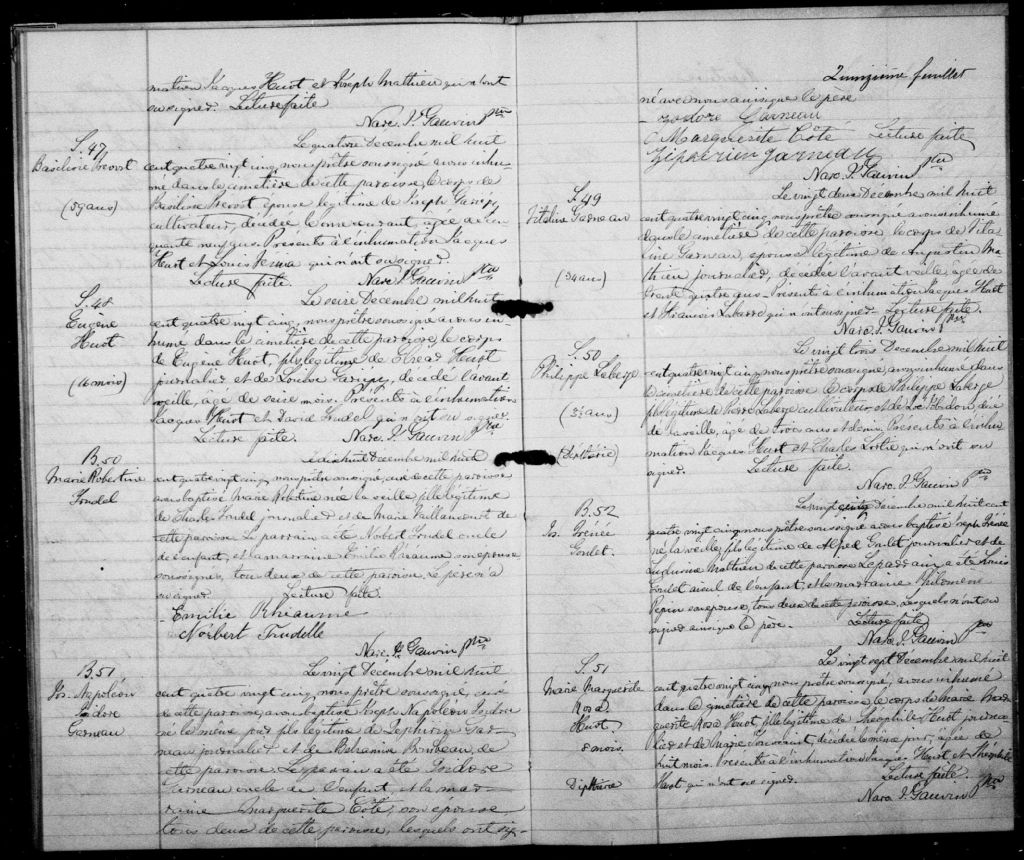 mation Jacques Huot et Joseph Mathieu qui n'ont
su signer. Lecture faite
Narc. J. Gauvin Ptre
S. 47
Basilisse Prevost
(59 ans)
Le quatorze Decembre mil huit
cent quatre vingt cinq, nous prêtre soussigné avons inhu-
mé dans le cimetière de cette paroisse, le corps de
Basilisse Prevost épouse légitime de Joseph Gariépy
cultivateur, décédée le onze courant, agée de cin-
quante neuf ans. Présents à l'inhumation Jacques
Huot et Louis qui n'ont su signer.
Lecture faite. Narc. J. Gauvin Ptre
S. 48
Eugène
Huot
(16 mois)
Le seize Decembre mil huit
cent quatre vingt cinq, nous prêtre soussigné avons in-
humé dans le cimetière de cette paroisse, le corps
de Eugène Huot, fils légitime de Huot
journalier et de Louise Gariépy, décédé l'avant
veille, agé de seize mois. Présents à l'inhumation
Jacques Huot et David Trudel qui n'ont su signer.
Lecture faite. Narc. J. Gauvin Ptre
B. 50
Marie Robertine
Trudel
Le dix huit Decembre mil huit
cent quatre vingt cinq, nous prêtre soussigné, curé de cette paroisse
avons baptisé Marie Robertine née la veille, fille légitime
de Charles Trudel journalier et de Marie Vaillancourt de
cette paroisse. Le parrain a été Norbert Trudel oncle
de l'enfant, et la marraine Emilie Rhéaume son épouse
soussignés, tous deux de cette paroisse. Le père n'a
su signer. Lecture faite.
Emilie Rhéaume
Norbert Trudelle
Narc. J. Gauvin Ptre
B. 51
Jos. Napoléon
Isidore
Garneau
Le vingt Décembre mil huit
cent quatre vingt cinq, nous prêtre soussigné, curé
de cette paroisse, avons baptisé Joseph Napoléon Isidore
né le même jour, fils légitime de Zéphirin Gar-
neau journalier et de Bibeau, de
cette paroisse. Le parrain a été Isidore
Garneau oncle de l'enfant, et la mar-
raine Marguerite Côté, son épouse
tous deux de cette paroisse, lesquels ont si-
Quinzième feuillet
né avec nous ainsi que le père
Isodore Garneau
Marguerite Côté Lecture faite
Zéphirien Garneau
Narc. J. Gauvin Ptre
S. 49
Vitaline Garneau
(34 ans)
Le vingt deux Decembre mil huit
cent quatre vingt cinq, nous prêtre soussigné avons inhumé
dans le cimetière de cette paroisse le corps de Vita-
line Garneau, épouse légitime de Augustin Ma-
thieu journalier, décédée l'avant veille, agée de
trente quatre ans. Présents à l'inhumation Jacques Huot
et Francois Laberge qui n'ont su signer. Lecture faite.
Narc. J. Gauvin Ptre
S. 50
Philippe Laberge
(3½ ans)
(Diphtérie)
Le vingt trois Decembre mil huit
cent quatre vingt cinq, nous prêtre soussigné, avons inhumé dans
le cimetière de cette paroisse le corps de Philippe Laberge
fils légitime de Pierre Laberge cultivateur, et de décé-
dé la veille, agé de trois ans et demi. Présents à l'inhu-
mation Jacques Huot et Charles qui n'ont su
signer. Lecture faite.
Narc. J. Gauvin Ptre
B. 52
Jos. Irénée
Goulet
Le vingt cinq Décembre mil huit cent
quatre vingt cinq nous prêtre soussigné avons baptisé Joseph Irénée
né la veille, fils légitime de Alfred Goulet journalier et de
Ludivine Mathieu de cette paroisse. Le parrain a été Louis
Goulet aieul de l'enfant, et la marraine Philomène
Pepin son épouse, tous deux de cette paroisse, lesquels n'ont su
signer ainsi que le père. Lecture faite
Narc. J. Gauvin Ptre
S. 51
Marie Marguerite
Rosa
Huot
8 mois.
Diphtérie
Le vingt sept Décembre mil huit
cent quatre vingt cinq, nous prêtre soussigné, avons inhumé
dans le cimetière de cette paroisse le corps de Marie Mar-
guerite Rosa Huot, fille légitime de Théophile Huot journa-
lier et de Marie décédée le même jour, agée de
huit mois. Présents à l'inhumation Jacques Huot et Théophile
Huot qui n'ont su signer. Lecture faite.
Narc. J. Gauvin Ptre